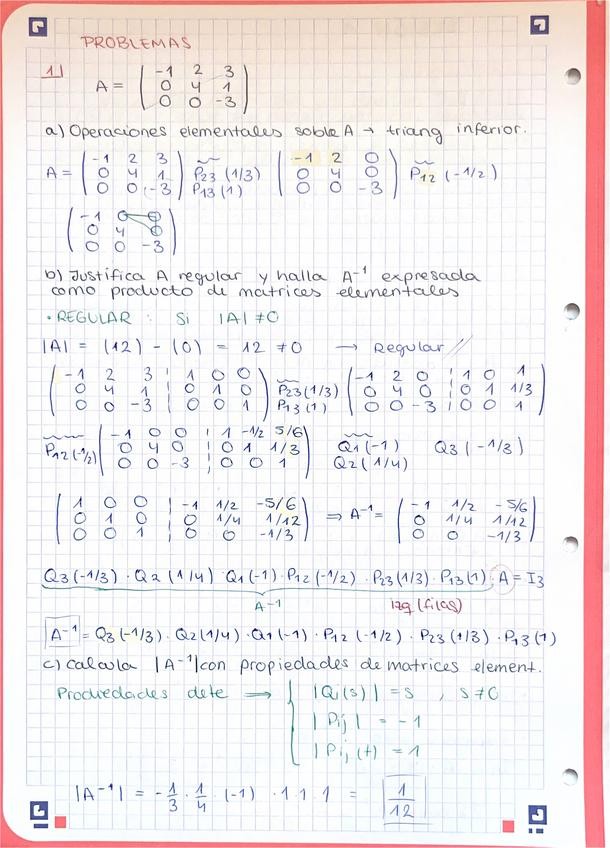 PROBLEMAS
1
A = ( -1 2 3 ; 0 4 1 ; 0 0 -3 )
a) Operaciones elementales soble A → triang inferior.
A = ( -1 2 3 ; 0 4 1 ; 0 0 -3 ) P23 (1/3) P13 (1) ( -1 2 0 ; 0 4 0 ; 0 0 -3 ) P12 (-1/2)
( -1 0 0 ; 0 4 0 ; 0 0 -3 )
b) Justifica A regular y halla A⁻¹ expresada
como producto de matrices elementales
• REGULAR : Si |A| ≠ 0
|A| = (12) - (0) = 12 ≠ 0 → Regular //
( -1 2 3 | 1 0 0 ; 0 4 1 | 0 1 0 ; 0 0 -3 | 0 0 1 ) P23 (1/3) P13 (1) ( -1 2 0 | 1 0 1 ; 0 4 0 | 0 1 1/3 ; 0 0 -3 | 0 0 1 )
P12 (-1/2) ( -1 0 0 | 1 -1/2 5/6 ; 0 4 0 | 0 1 1/3 ; 0 0 -3 | 0 0 1 ) Q1 (-1) Q3 (-1/3) Q2 (1/4)
( 1 0 0 | -1 1/2 -5/6 ; 0 1 0 | 0 1/4 1/12 ; 0 0 1 | 0 0 -1/3 ) ⇒ A⁻¹ = ( -1 1/2 -5/6 ; 0 1/4 1/12 ; 0 0 -1/3 )
Q3 (-1/3) · Q2 (1/4) · Q1 (-1) · P12 (-1/2) · P23 (1/3) · P13 (1) · A = I3
A⁻¹ izq (filas)
A⁻¹ = Q3 (-1/3) · Q2 (1/4) · Q1 (-1) · P12 (-1/2) · P23 (1/3) · P13 (1)
c) calcula |A⁻¹| con propiedades de matrices element.
Propiedades dete ⟹ |Qi(s)| = s , s ≠ 0
|Pij| = -1
|Pij (t) = 1
|A⁻¹| = -1/3 · 1/4 · (-1) · 1 · 1 · 1 = 1/12